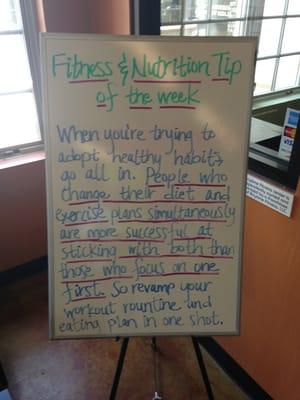 Fitness & Nutrition Tip
of the week
When you're trying to
adopt healthy habits,
go all in. People who
change their diet and
exercise plans simultaneously
are more successful at
sticking with both than
those who focus on one
first. So revamp your
workout rountine and
eating plan in one shot.
VISA